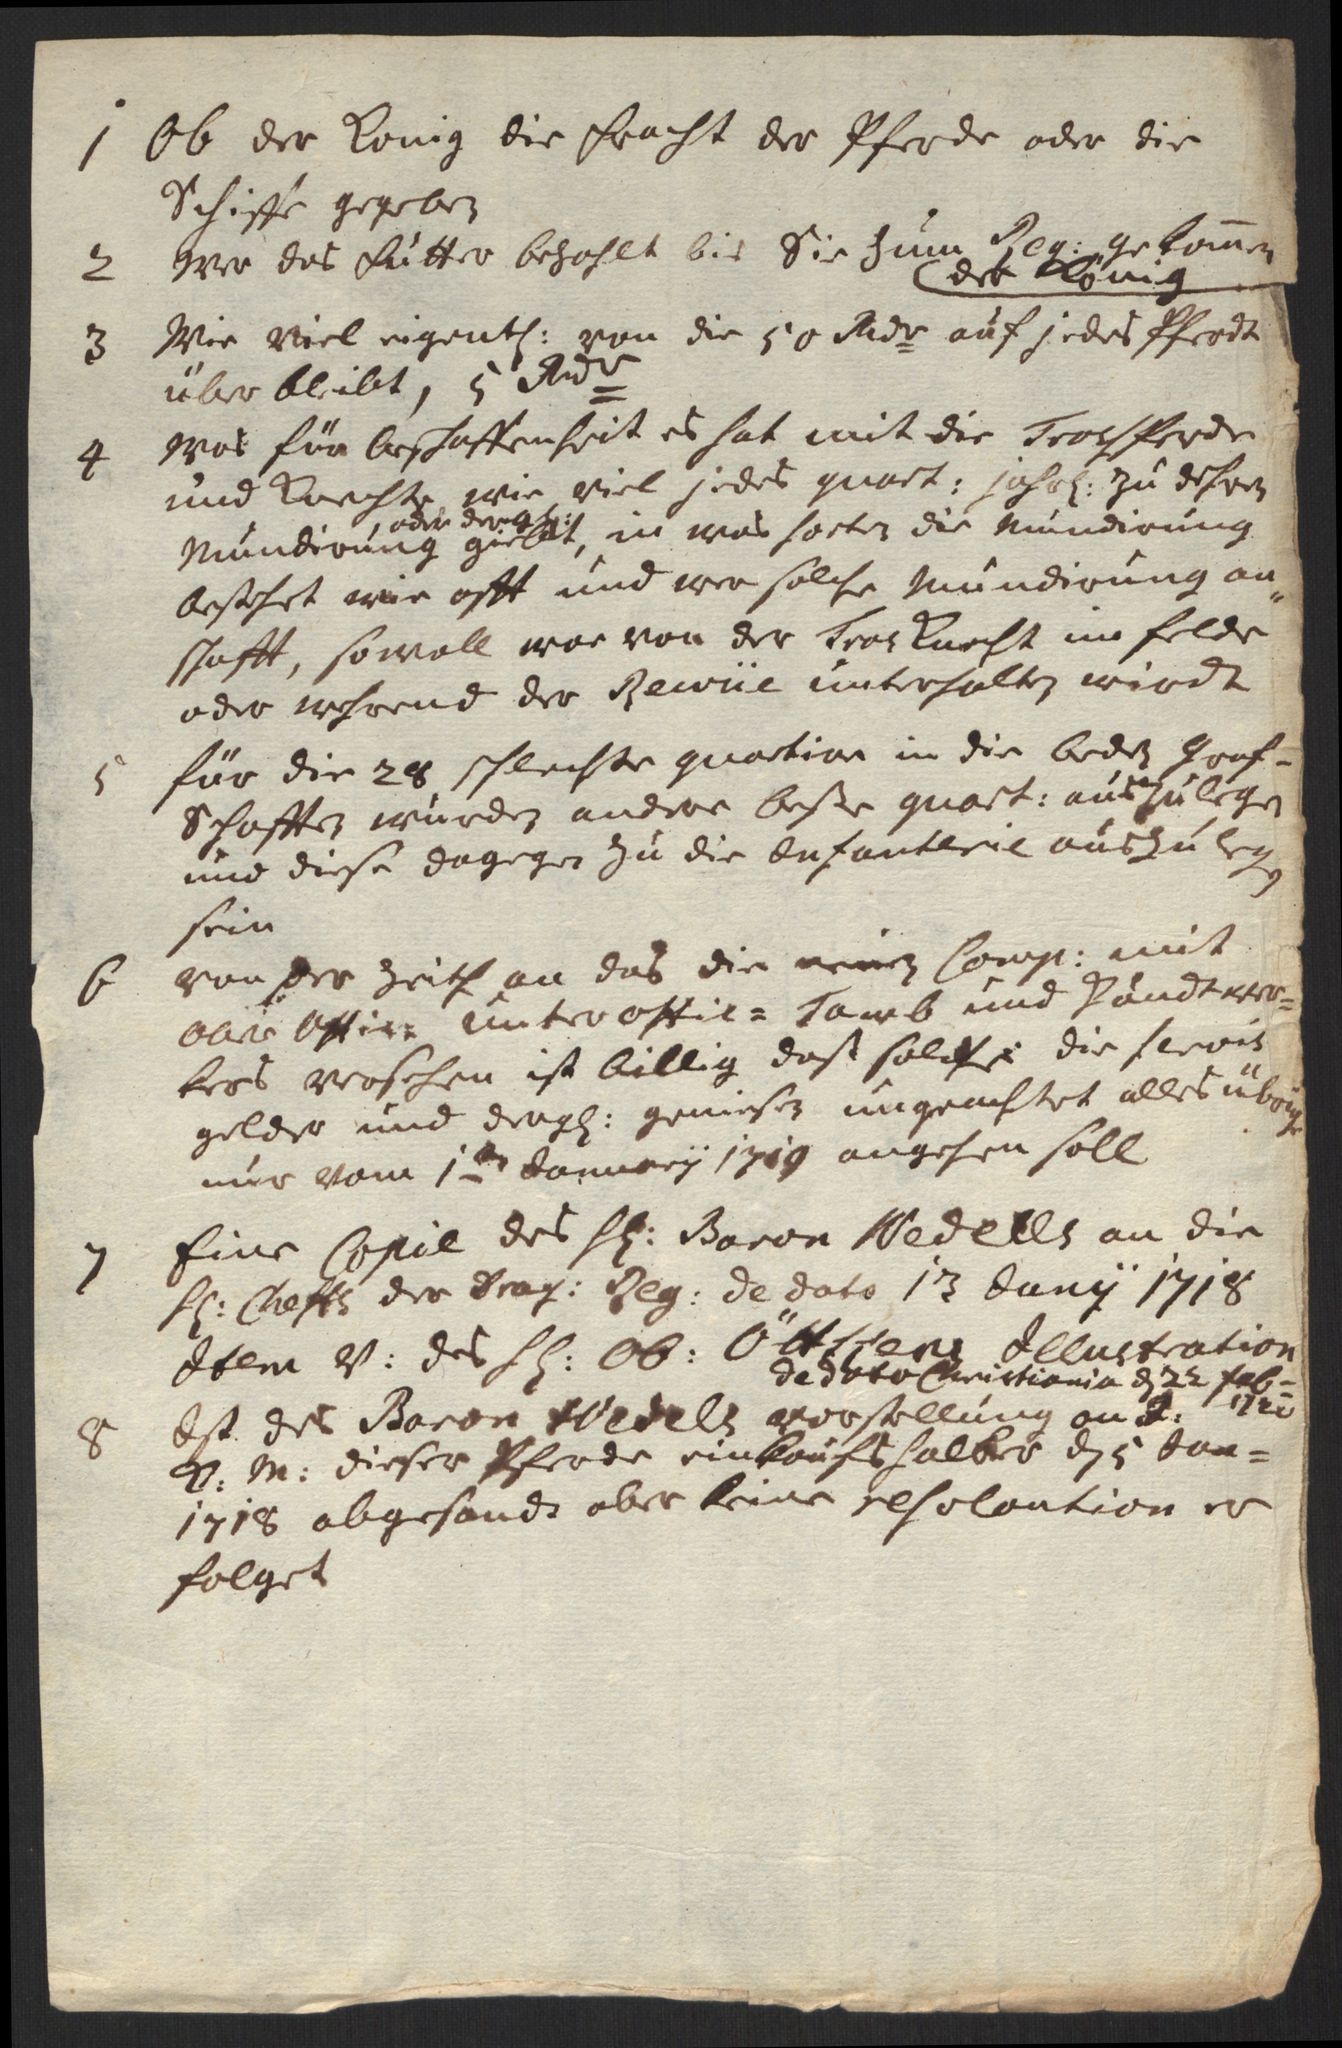 1 Ob der König die fracht der Pferde oder die
Schiffe gegeben
2 Wer das futter bezahlt bis Sie zum Reg: gekom̄en
der König
3 Wie Viel eigentl: von die 50 Rdr auf jedes Pferdt
über bleibt, 5 Rdr
4 Was für beschaffenheit es hat mit die Trosspferde
und Knechte wie viel jedes quart: jährl: zu dehren
oder dergl:
Mundirung giebet, in was sorten die Mundirung
bestehet wie offt und wer solche Mundirung an„
schafft, sowoll wovon der Tros Knecht im felde
oder wehrend der Revüe unterhalten wirdt
5 für die 28 schlechte quartire in die beden Graf-
Schafften wurden andere beste quart: auszulegen
und diese dagegen zu die Infanterie auszulegen
sein
6 von der Zeith an das die neuen Comp: mit
ober Offic: unteroffic= Tamb und Handtwer=
kers versehen ist billig dass solche die servis
gelder und dergl: geniesen ungeachtet alles übrige
nur vom 1ten January 1719 angehen soll
7 Eine Copie des H: Baron Wedells an die
H: Cheffs der Drag: Reg: de dato 13 Juny 1718
Item V: des H: Ob: Öttkens Illustration
de dato Christiania d 22 feb=
1720
8 Ist des Baron Wedels vorstellung an I:
K: M: dieser Pferde einkaufs halber d 5 Jan=
1718 abgesandt aber keine resoloution er
folget